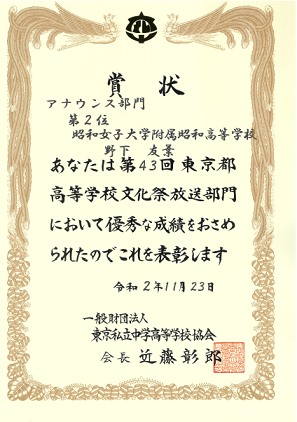 賞状
アナウンス部門
第2位
昭和女子大学附属昭和高等学校
野下 友葉
あなたは第43回東京都
高等学校文化祭放送部門
において優秀な成績をおさめ
られたのでこれを表彰します
令和2年11月23日
一般財団法人
東京私立中学高等学校協会
会長 近藤彰郎